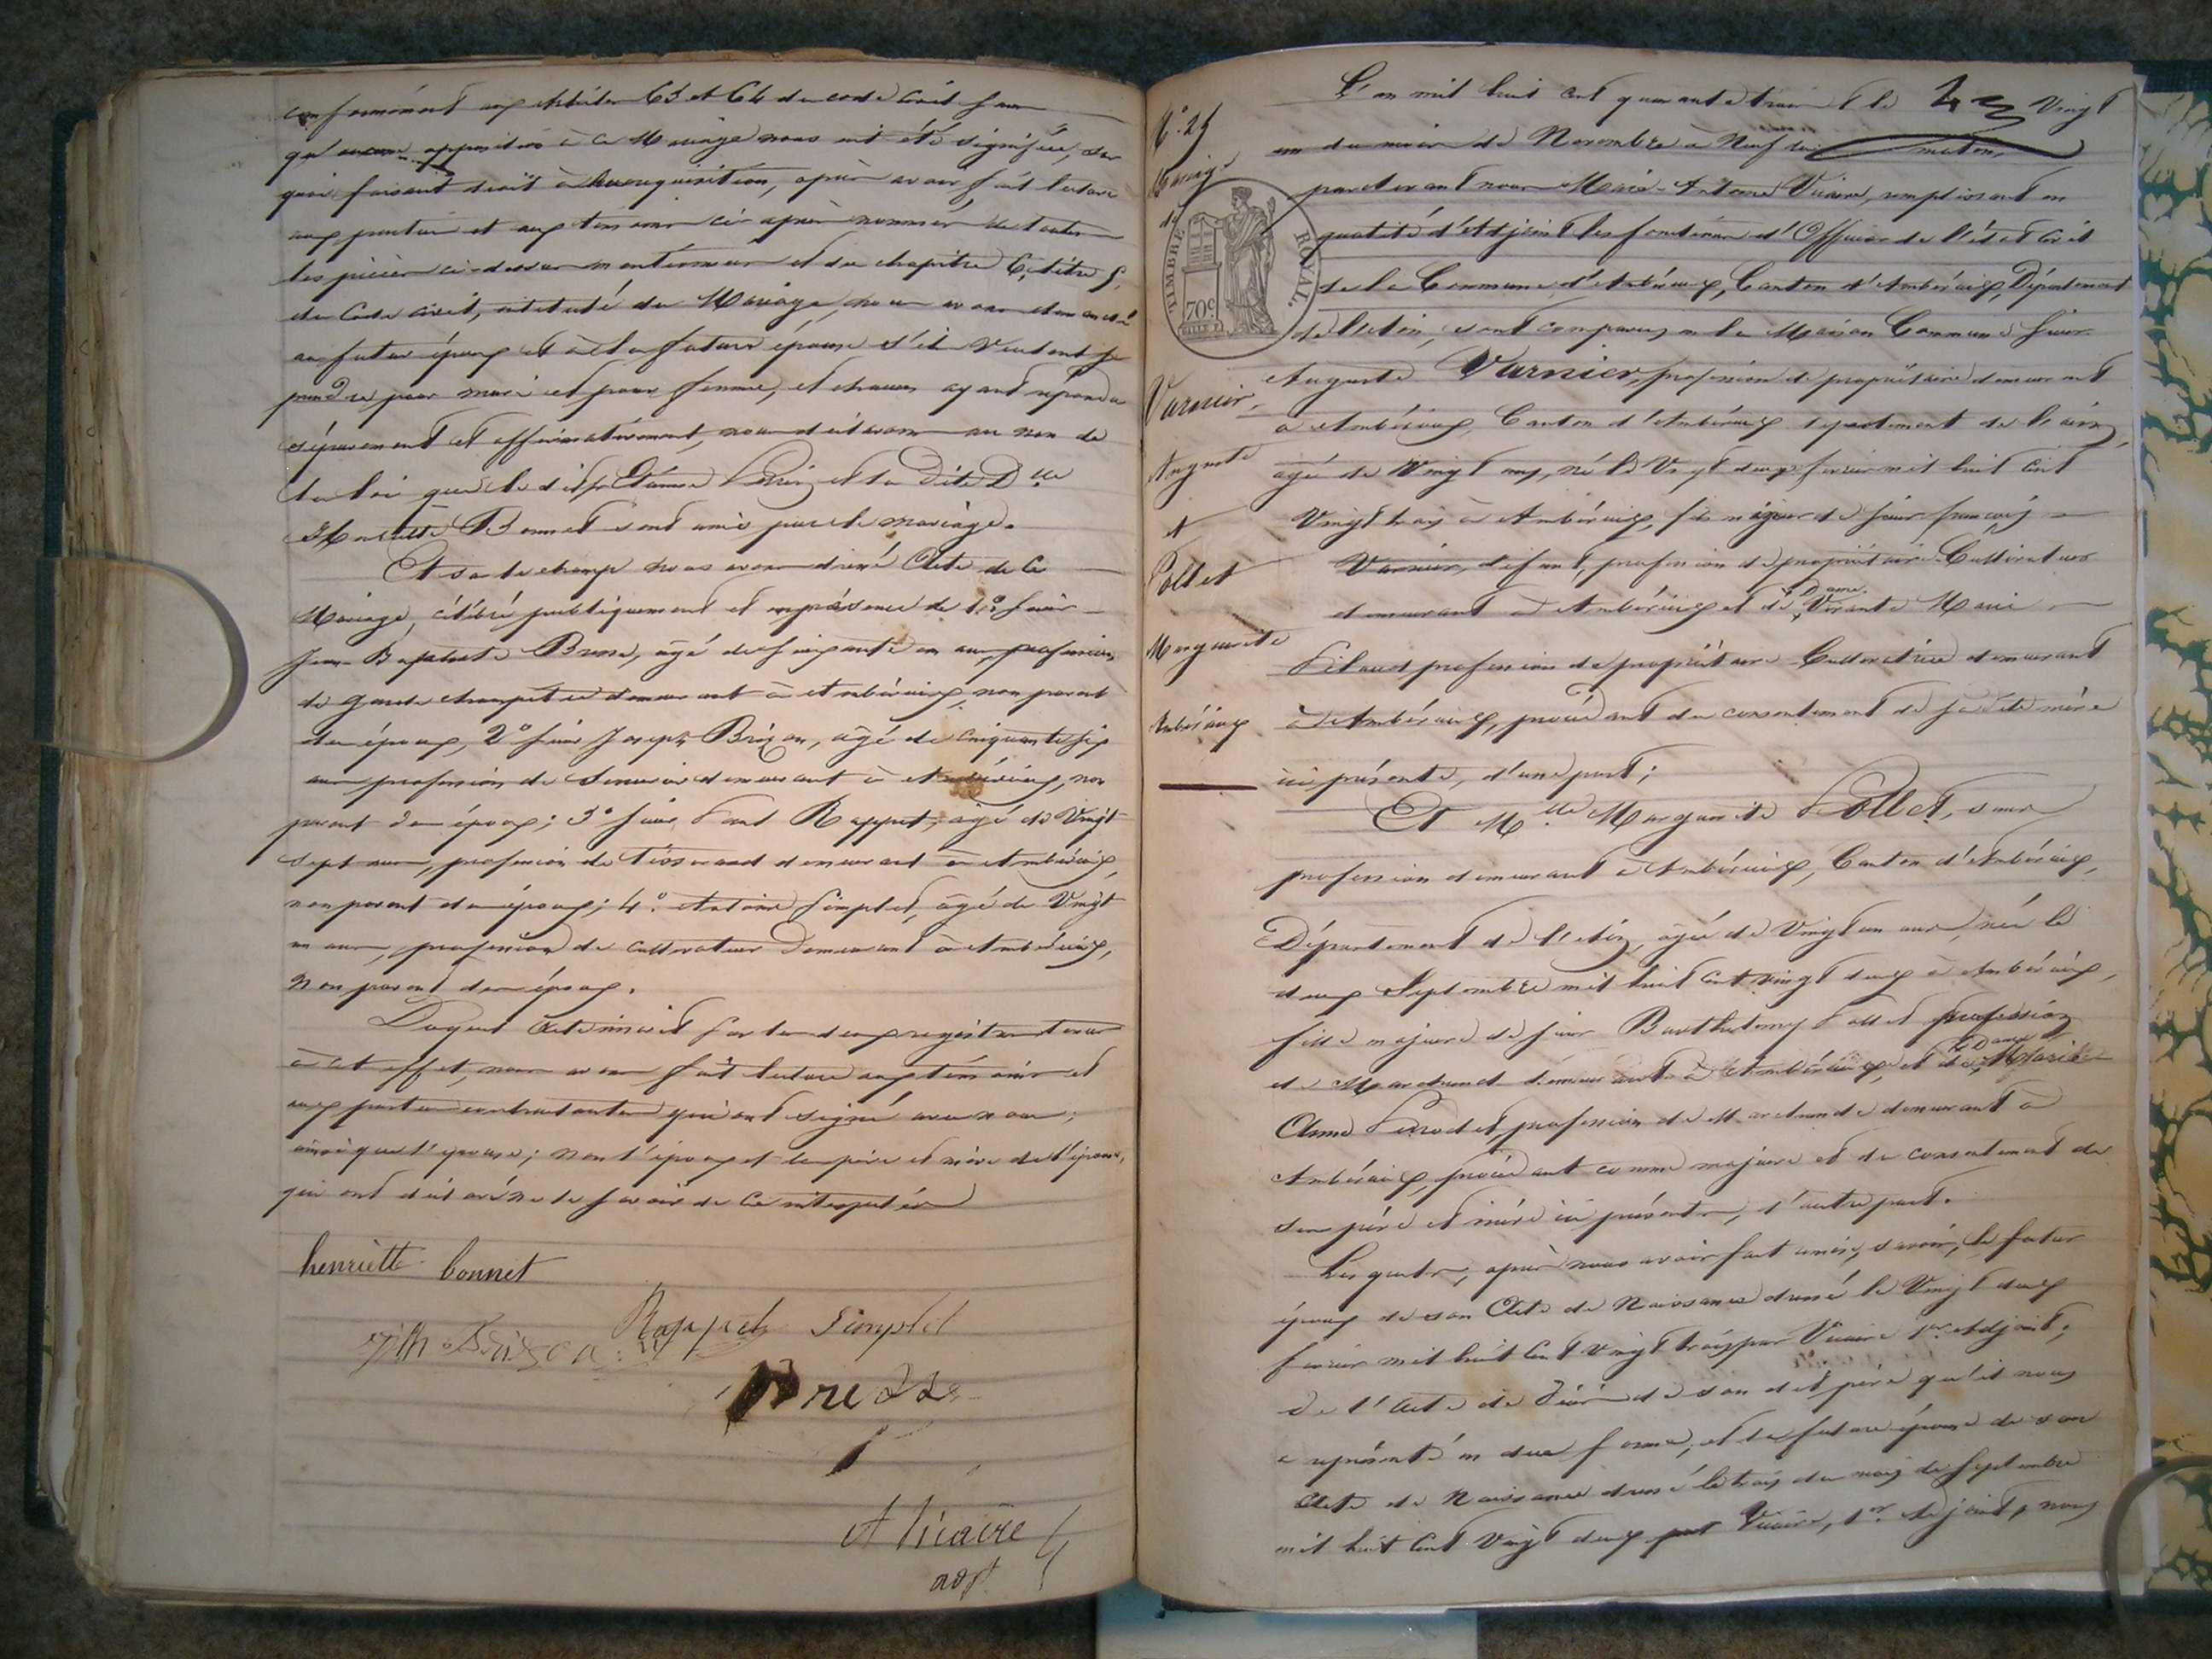 conformément aux articles 63 et 64 du code civil sans
qu'aucune opposition à ce Mariage nous ait été signifiée,
faisant droit à leur réquisition, après avoir fait lecture
aux parties et aux témoins ci-après nommés de toutes
les pièces ci-dessus mentionnées et du chapitre 6, titre 5,
du Code civil, intitulé du Mariage, nous avons demandé
au futur époux et à la future épouse s'ils veulent se
prendre pour mari et pour femme, et chacun ayant répondu
séparément et affirmativement, nous déclarons au nom de
la loi que le dit et la dite Dlle
Henriette Bonnet sont unis par le mariage.
Et sur le champ nous avons dressé Acte de ce
Mariage, célébré publiquement et en présence de 1° sieur
Jean-Baptiste âgé de ans, profession
de garde champêtre demeurant à Ambérieux, non parent
des époux, 2° sieur Joseph Brizon, âgé de cinquante six
ans profession de demeurant à Ambérieux, non
parent des époux; 3° sieur Rappet, âgé de Vingt
sept ans, profession de tisserand demeurant à Ambérieux,
non parent des époux; 4° Antoine Simplet, âgé de Vingt
un ans, profession de cultivateur demeurant à Ambérieux,
Non parent des époux.
Duquel Acte inscrit sur les deux registres tenus
à cet effet, nous avons fait lecture aux témoins et
aux parties contractantes qui ont signé avec nous;
ainsi que l'épouse; non l'époux et les père et mère de l'épouse,
qui ont déclaré ne le savoir de ce interpellés
henriètte bonnet
Brison Rappet Simplet
A Vicaire
adjt
N° 25
Mariage
de
Varnier
Auguste
et
Pollet
Marguerite
Ambérieux
TIMBRE ROYAL.
70c
L'an mil huit cent quarante trois et le Vingt
un du mois de Novembre à Neuf du matin,
pardevant nous Marie-Antoine Vicaire, remplissant en
qualité d'Adjoint les fonctions d'Officier de l'état civil
de la Commune d'Ambérieux, Canton d'Ambérieux, Département
de l'Ain, sont comparus en la Maison Commune Sieur
Auguste Varnier, profession de propriétaire demeurant
à Ambérieux, Canton d'Ambérieux département de l'ain,
agé de Vingt ans, né le Vingt deux février mil huit cent
Vingt trois à Ambérieux, fils mineur de sieur françois
Varnier, défunt, profession de propriétaire-Cultivateur
demeurant à Ambérieux et de Dame Vivante Marie
profession de propriétaire Cultivatrice demeurant
à Ambérieux, procédant du consentement de sa dite mère
ici présente, d'une part;
Et Mlle Marguerite Pollet, sans
profession demeurant à Ambérieux, Canton d'Ambérieux,
Département de l'Ain, agée de Vingt un ans, née le
deux Septembre mil huit cent vingt deux à Ambérieux,
fille majeure de sieur Barthelemy Pollet profession
de Marchand demeurant à Ambérieux, et de Dame Marie
Anne profession de Marchande demeurant à
Ambérieux, procédant comme majeure et du consentement de
son père et mère ici présents, d'autre part.
Lesquels, après nous avoir fait remise, savoir, le futur
époux de son Acte de Naissance dressé le Vingt deux
février mil huit cent vingt trois par Vicaire 1er Adjoint;
de l'Acte de Décès de son dit père qu'il nous
a représenté en due forme; et la future épouse de son
Acte de Naissance dressé le trois du mois de Septembre
mil huit cent Vingt deux par Vicaire, 1er Adjoint, nous